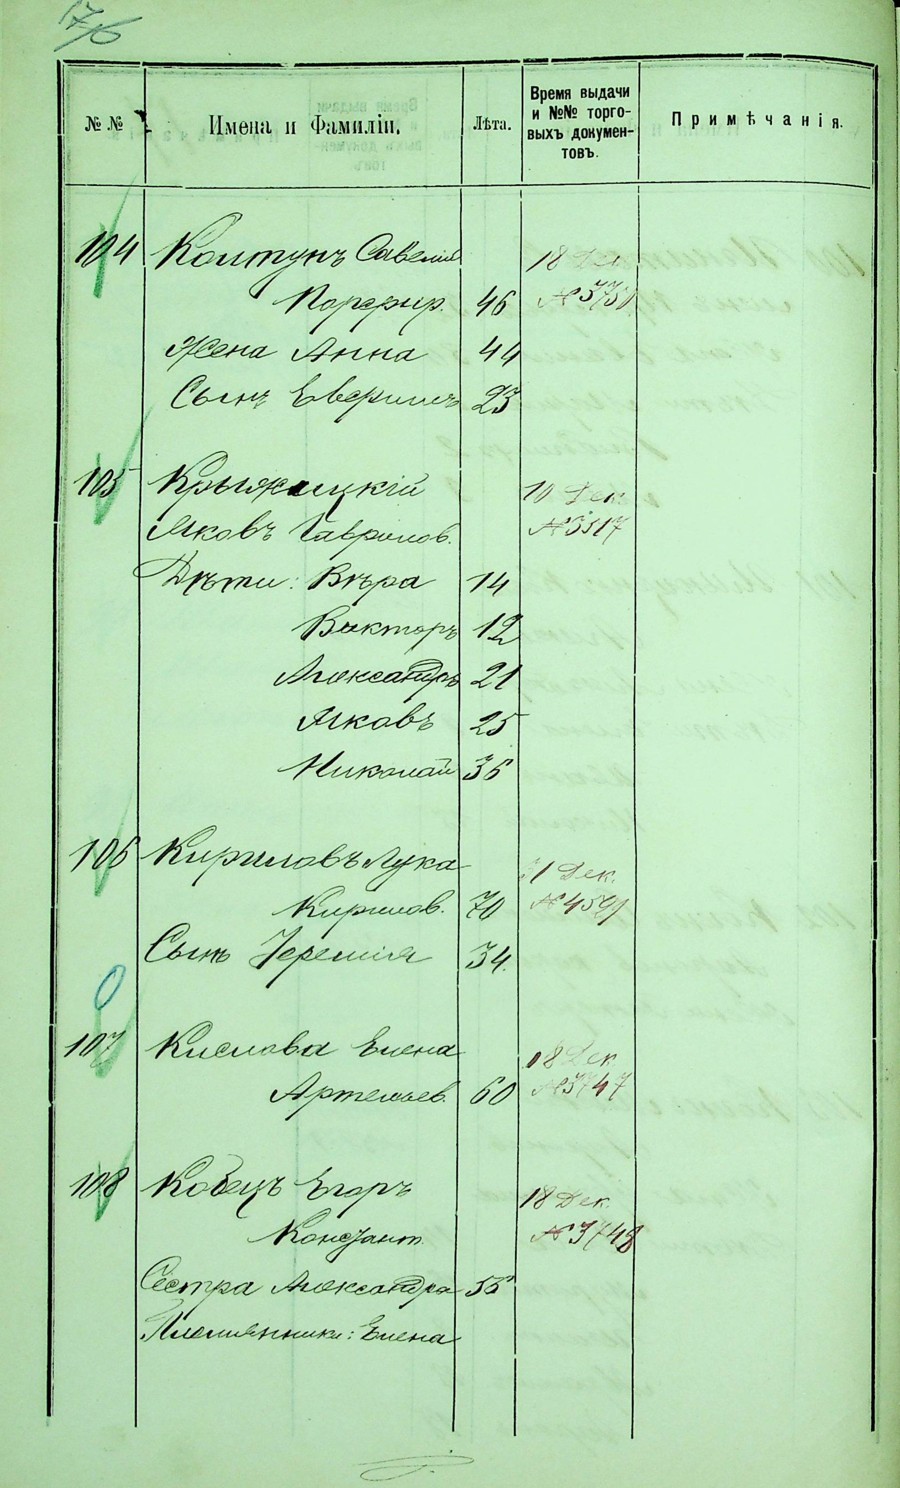 17/б
№№ Имена и Фамиліи. Лѣта. Время выдачи и №№ торго-выхъ докумен-товъ. Примѣчанія.
104 Колтунъ Савелій 18 Дек.
Порфир. 46
Жена Анна 44
Сынъ 23
105 10 Дек.
Яковъ Гаврилов. №3517
Дѣти: Вѣра 14
Викторъ 12
Александръ 21
Яковъ 25
Николай 36
106 Кириловъ Лука 31 Дек.
Кирилов. 70 №4591
Сынъ Іеремія 34.
107 Кислова Елена 18 Дек.
Артемьев. 60 №3747
108 Кобецъ Егоръ 18 Дек.
Констант. №3748
Сестра Александра 55
Племянники: Елена